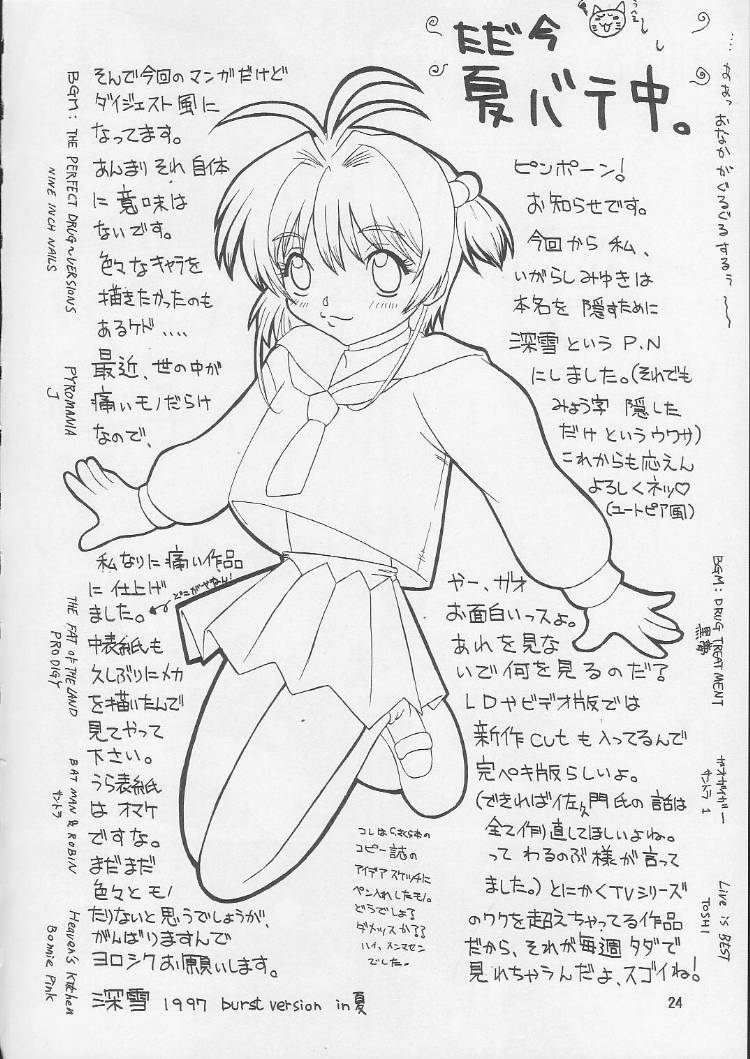 ただ今
夏バテ中。
うへぇ〜
…なぁっおなかがぐるぐるするぅ〜
ピンポーン!
お知らせです。
今回から私、
いがらしみゆきは
本名を隠すために
深雪というP.N
にしました。(それでも
みょう字隠した
だけというウワサ)
これからも応えん
よろしくネッ♡
(ユートピア風)
やー、ガオ
お面白いっスよ。
あれを見な
いで何を見るのだ?
LDやビデオ版では
新作cutも入ってるんで
完ペキ版らしいよ。
(できれば佐久門氏の話は
全て作り直してほしいよね。
ってわるのぶ様が言って
ました。)とにかくTVシリーズ
のワクを超えちゃってる作品
だから、それが毎週タダで
見れちゃうんだよ、スゴイね!
そんで今回のマンガだけど
ダイジェスト風に
なってます。
あんまりそれ自体
に意味は
ないです。
色々なキャラを
描きたかったのも
あるケド....
最近、世の中が
痛いモノだらけ
なので、
私なりに痛い作品
に仕上げ
ました。
どこがやねん!
中表紙も
久しぶりにメカ
を描いたんで
見てやって
下さい。
うら表紙
はオマケ
ですな。
まだまだ
色々とモノ
たりないと思うでしょうが、
がんばりますんで
ヨロシクお願いします。
深雪 1997 burst version in夏
コピー誌の
アイデアスケッチに
ペン入れしたモノ。
どうでしょる
ダメッスかる?
ハイ、スンマセン
でした。
BGM: DRUG TREATMENT
黒夢
ガオガイガー
サントラ1
Live is BEST
TOSHI
BGM: THE PERFECT DRUG~VERSIONS
NINE INCH NAILS
PYROMANIA
J
THE FAT OF THE LAND
PRODIGY
BATMAN & ROBIN
サントラ
Heaven's Kitchen
Bonnie Pink
24